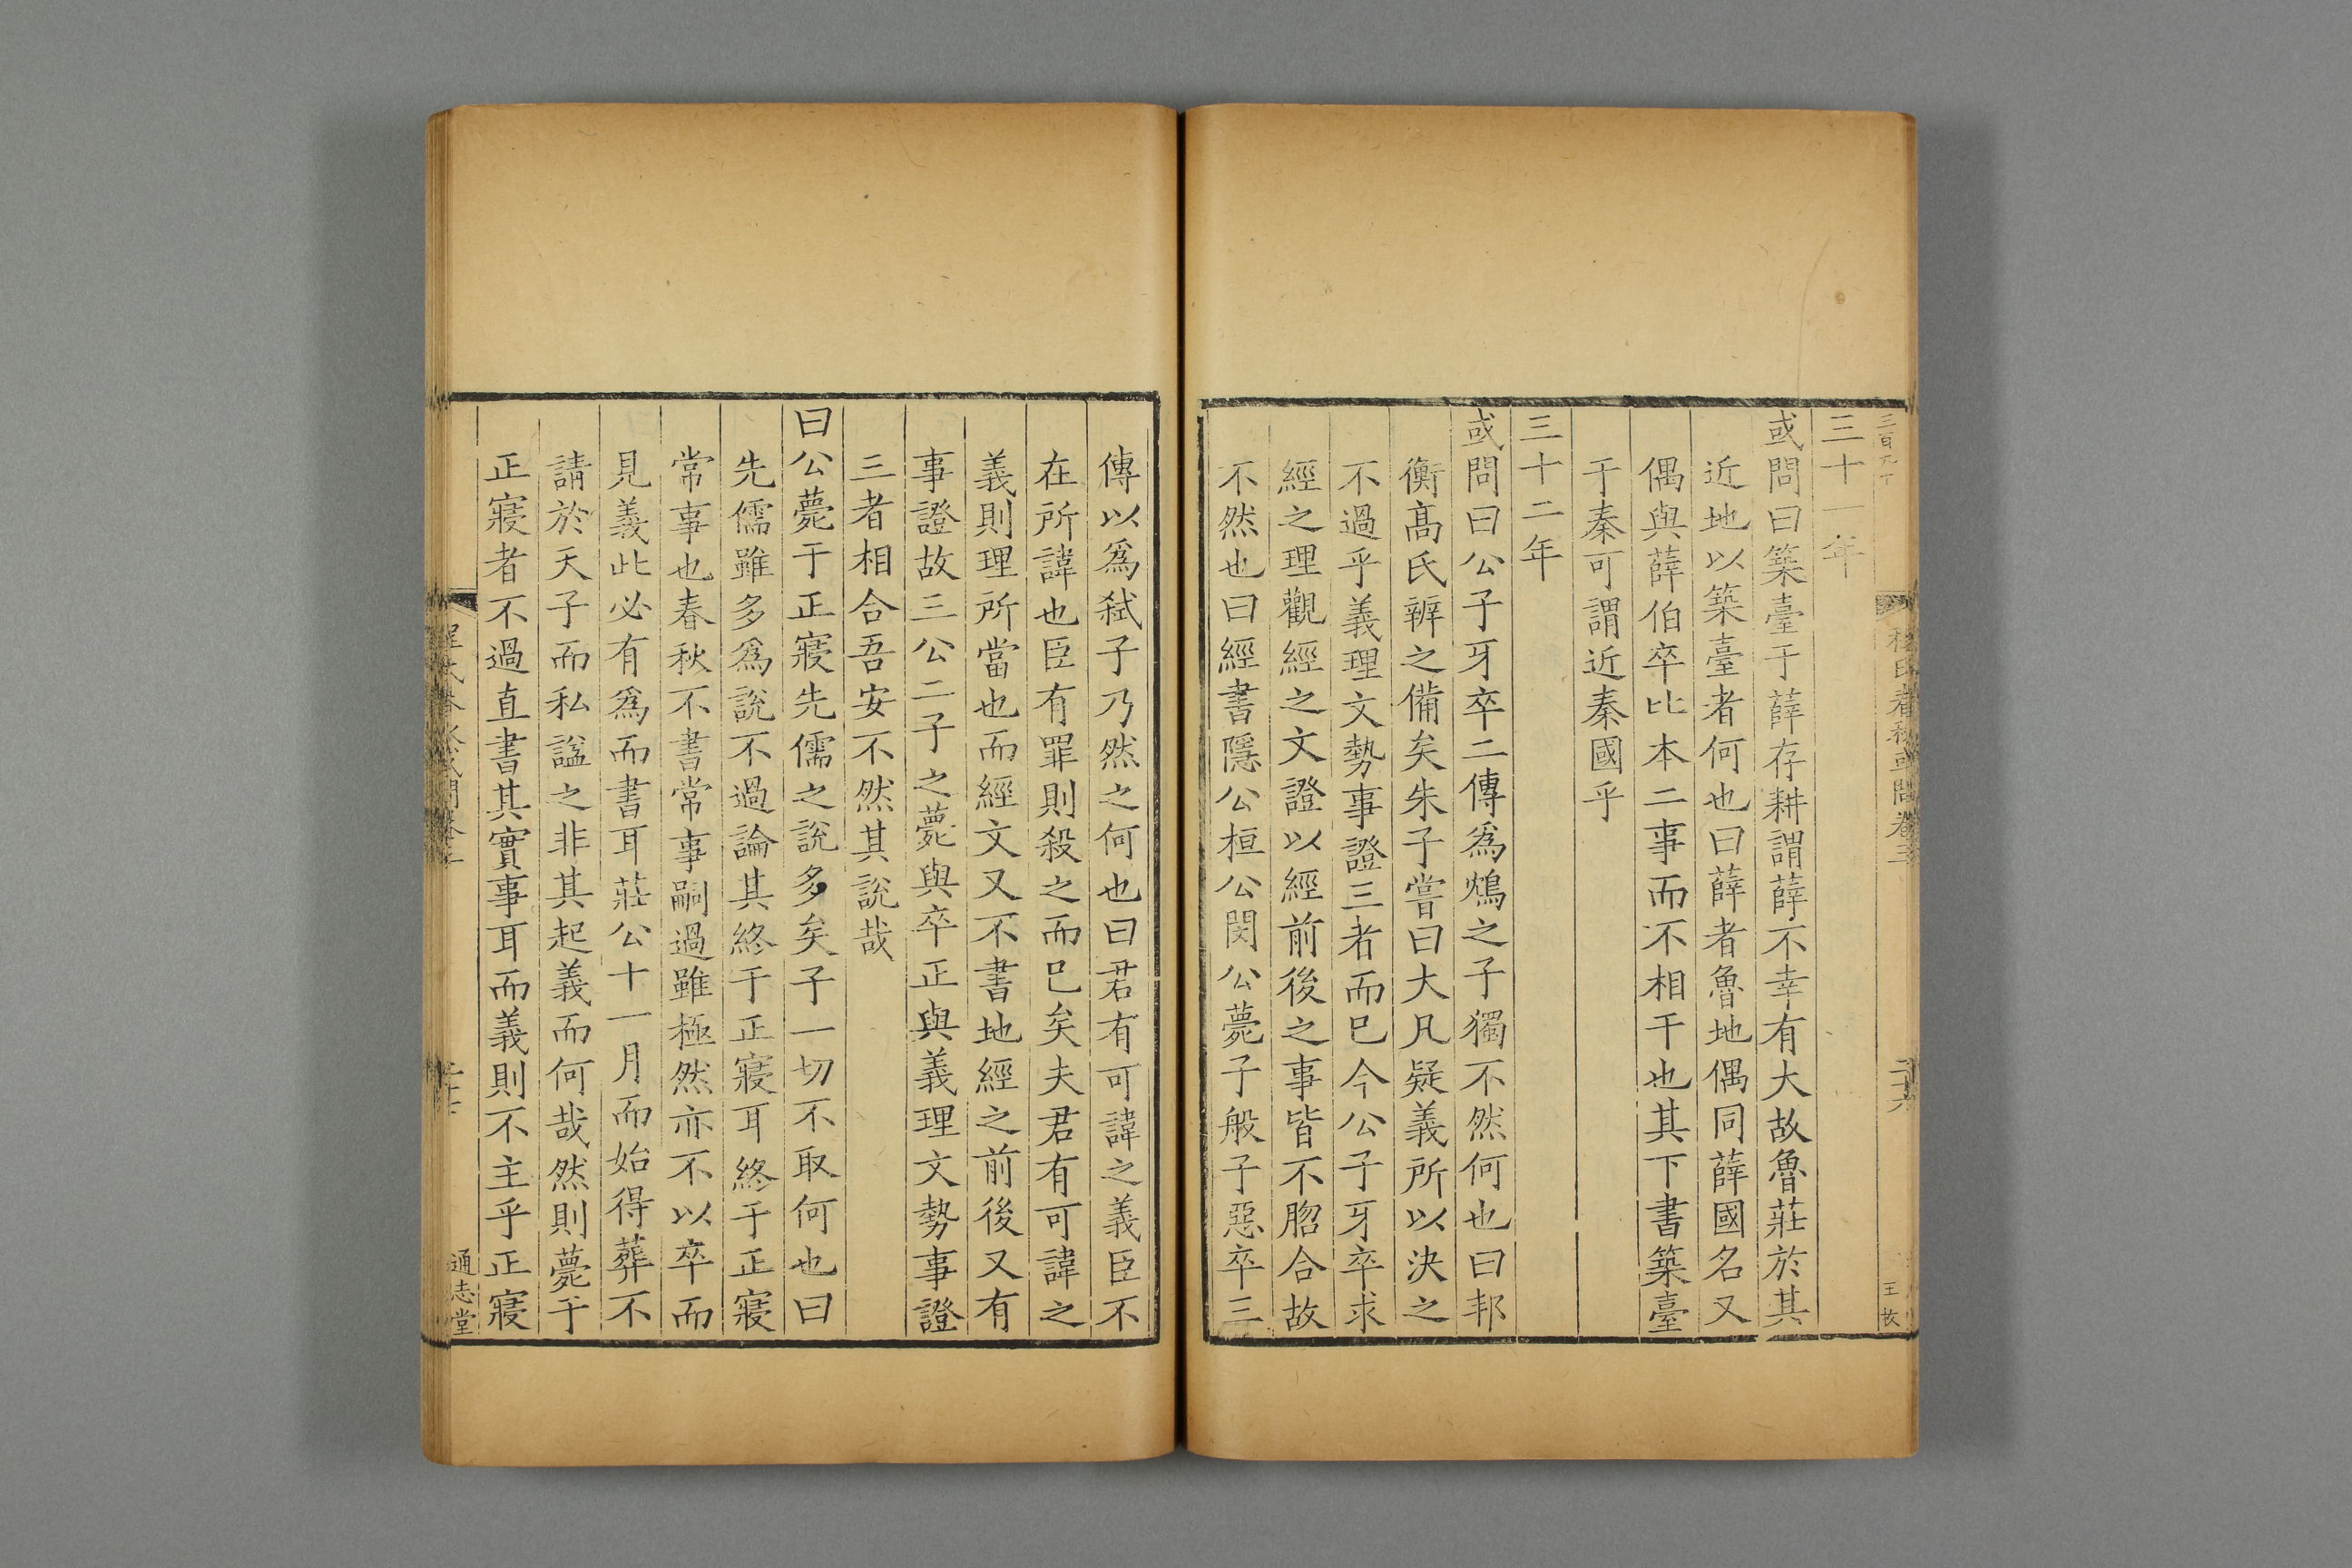 三十一年
或問曰築臺于薛存耕謂薛不幸有大故魯莊於其
近地以築臺者何也曰薛者魯地偶同薛國名又
偶與薛伯卒比本二事而不相干也其下書築臺
于秦可謂近秦國乎
三十二年
或問曰公子牙卒二傳爲鴆之子獨不然何也曰邦
衡髙氏辨之備矣朱子嘗曰大凡疑義所以決之
不過乎義理文勢事證三者而已今公子牙卒求
經之理觀經之文證以經前後之事皆不脗合故
不然也曰經書隱公桓公閔公薨子般子惡卒三
傳以爲弑子乃然之何也曰君有可諱之義臣不
在所諱也臣有罪則殺之而已矣夫君有可諱之
義則理所當也而經文又不書地經之前後又有
事證故三公二子之薨與卒正與義理文勢事證
三者相合吾安不然其說哉
曰公薨于正寢先儒之說多矣子一切不取何也曰
先儒雖多爲說不過論其終于正寢耳終于正寢
常事也春秋不書常事嗣過雖極然亦不以卒而
見義此必有爲而書耳莊公十一月而始得葬不
請於天子而私諡之非其起義而何哉然則薨于
正寢者不過直書其實事耳而義則不主乎正寢
程氏春秋或問卷三
二十六
通志堂